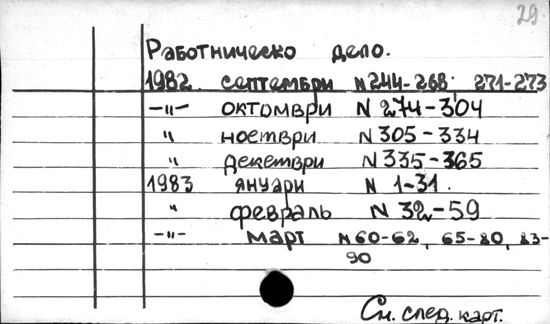 29
Работническо дело.
1982. септември N 244-268; 271-273
-"- октомври N 274-304
" ноември N 305-334
" декември N 335-365
1983 януари N 1-31.
" февраль N 32-59
-"- март N 60-62, 65-80, 83-
90
См. след. карт.